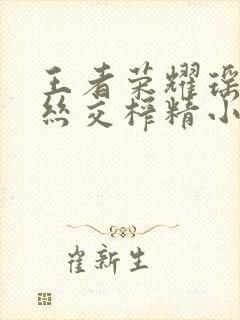 王者荣耀瑶
丝交榨精小
崔新生